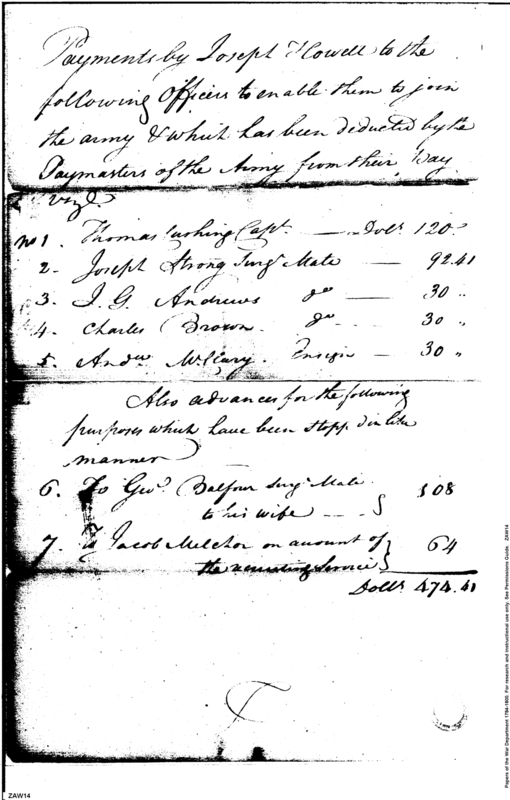 Payments by Joseph Howell to the
following Officers to enable them to join
the army & which has been deducted by the
Paymasters of the Army from their Pay
Vizt
No 1. Thomas Cushing Capt. — Dolls 120
2. Joseph Strong Surgs Mate — 92.41
3. J. G. Andrews do — 30 "
4. Charles Brown. do — 30 "
5. Andw McClary. Ensign — 30 "
Also advances for the following
purposes which have been stopp'd in like
manner
6. To Geo. Balfour Surgs Mate
to his wife - - - } 108
7. To Jacob Melcher on account of
the recruiting Service } 64
Dolls 474.41
ZAW14
Papers of the War Department 1784-1800. For research and instructional use only. See Permissions Guide. ZAW14